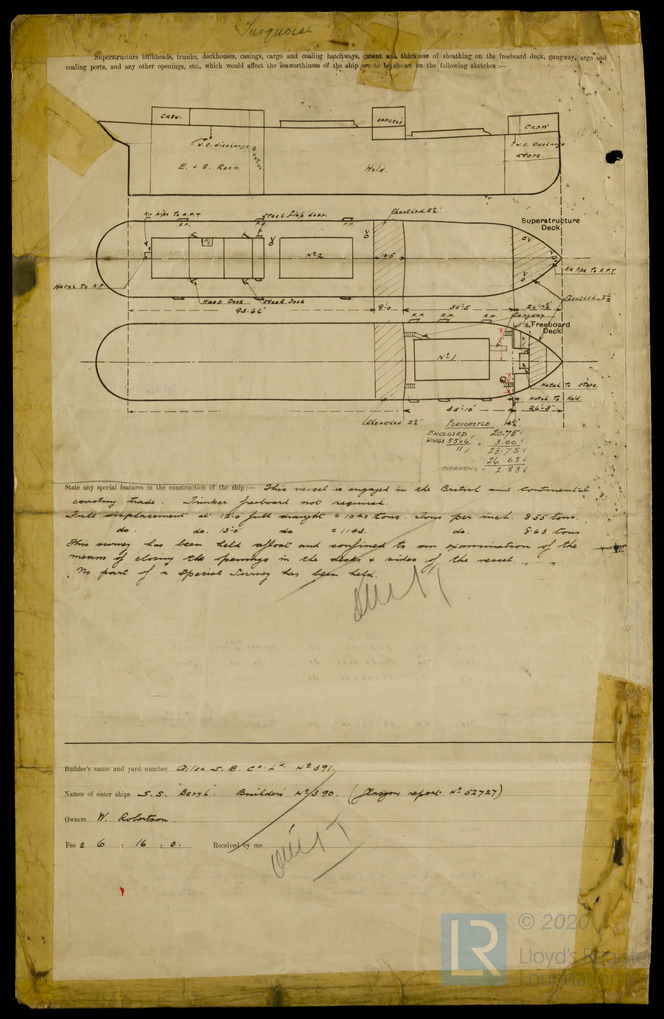 Turquoise
Superstructure bulkheads, trunks, deckhouses, casings, cargo and coaling hatchways, extent and thickness of sheathing on the freeboard deck, gangway, cargo and
coaling ports, and any other openings, etc., which would affect the seaworthiness of the ship are to be shown on the following sketches:—
CREW.
CREW
W.C. discharge
W.C. discharge
STORE.
E. & B. Room
Hold.
Air Pipe To A.P.T
Steel Flap door.
Sheathed 2½"
Superstructure
Deck
Nº 2
10.5
Air Pipe To F.P.T
Steel Door
9'.0
Freeboard
Deck
Nº 1
Hatch To Store
Hatch To Hold.
35'-10"
26'-8"
FORECASTLE
ENCLOSED 20.75
WINGS 3.00
23.75
26.63
OVERHANG = 2.88
State any special features in the construction of the ship:— This vessel is engaged in the British and continental
coasting trade. Timber freeboard not required.
Full displacement at 12'0 full draught = 1040 tons. Tons per inch. 8.55 tons.
do. do. 13'0" do = 1143. do. 8.63 tons
This survey has been held afloat and confined to an examination of the
means of closing the openings in the decks & sides of the vessel.
No part of a Special Survey has been held.
Builder's name and yard number Ailsa S. B. Co. Ld. Nº 391.
Names of sister ships S.S. "Beryl". Builders Nº 390. (Glasgow report Nº 52727)
Owners W. Robertson.
Fee £ 6 : 16 : 0. Received by me
LR
© 2020
Lloyd's Register
Foundation